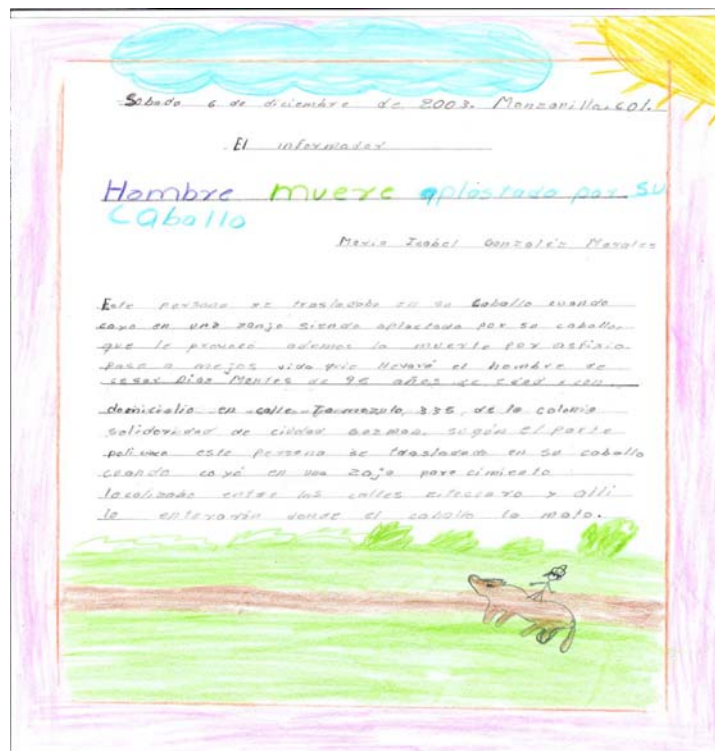 Sabado 6 de diciembre de 2003. Manzanilla, Col.
El informador
Hombre muere aplastado por su
Caballo
Maria Isabel Gonzaléz Morales
Este persona se trasladaba en su Caballo cuando
cayo en una zanja siendo aplastado por su caballo,
que le provocó ademas la muerte por asfixia
paso a mejor vida quie llevará el hombre de
cesar Dias Montes de 95 años de edad y con
domiciolio en calle Tamazula, 335, de la colonia
solidaridad de ciudad Guzman. según el parte
polisiaco este persona se trasladada en su caballo
cuando cayó en una zaja para cimiento
localizado entre las calles zitaccaro y alli
lo enterarón donde el caballo lo mato.